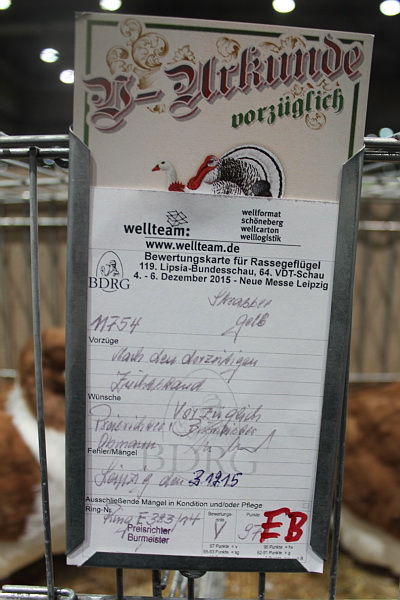 V-Urkunde
vorzüglich
wellteam:
wellformat
schöneberg
wellcarton
welllogistik
www.wellteam.de
Bewertungskarte für Rassegeflügel
119. Lipsia-Bundesschau, 64. VDT-Schau
4. - 6. Dezember 2015 - Neue Messe Leipzig
BDRG
Strasser
gelb
M754
Vorzüge
Nach dem derzeitigen
Zuchtstand
Wünsche
Vorzüglich
Obmann
Fehler/Mängel
Leipzig den 3.12.15
Ausschließende Mängel in Kondition und/oder Pflege
Ring-Nr.
Bewertungsnote
Punkte
Ring E 383/14
V
97 EB
Preisrichter
Burmeister